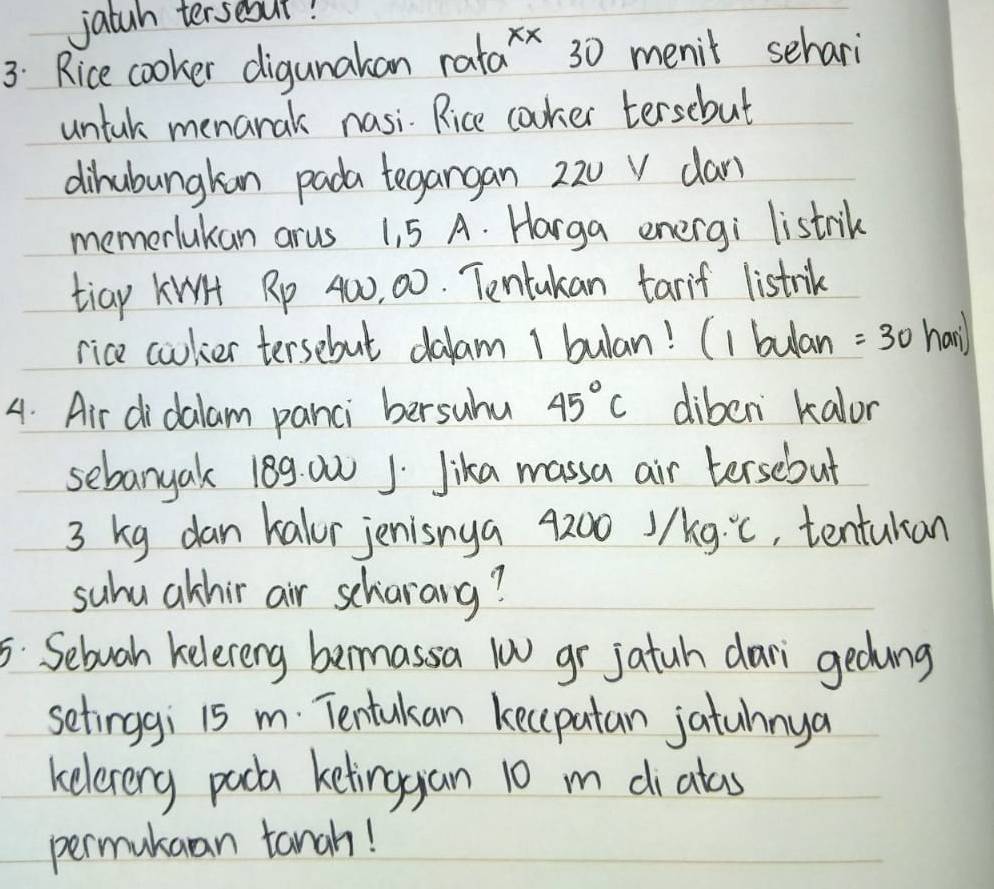 jatuh tersebut!
3. Rice cooker digunakan rata xx 30 menit sehari
untuk menanak nasi. Rice cooker tersebut
dihubungkan pada tegangan 220 V dan
memerlukan arus 1,5 A. Harga energi listrik
tiap kWH Rp 400,00. Tentukan tarif listrik
rice cooker tersebut dalam 1 bulan! (1 bulan = 30 hari)
4. Air di dalam panci bersuhu 45°C diberi kalor
sebanyak 189.000 J. Jika massa air tersebut
3 kg dan kalor jenisnya 4200 J/kg.°C, tentukan
suhu akhir air sekarang?
5. Sebuah kelereng bermassa 100 gr jatuh dari gedung
setinggi 15 m. Tentukan kecepatan jatuhnya
kelereng pada ketinggian 10 m di atas
permukaan tanah!